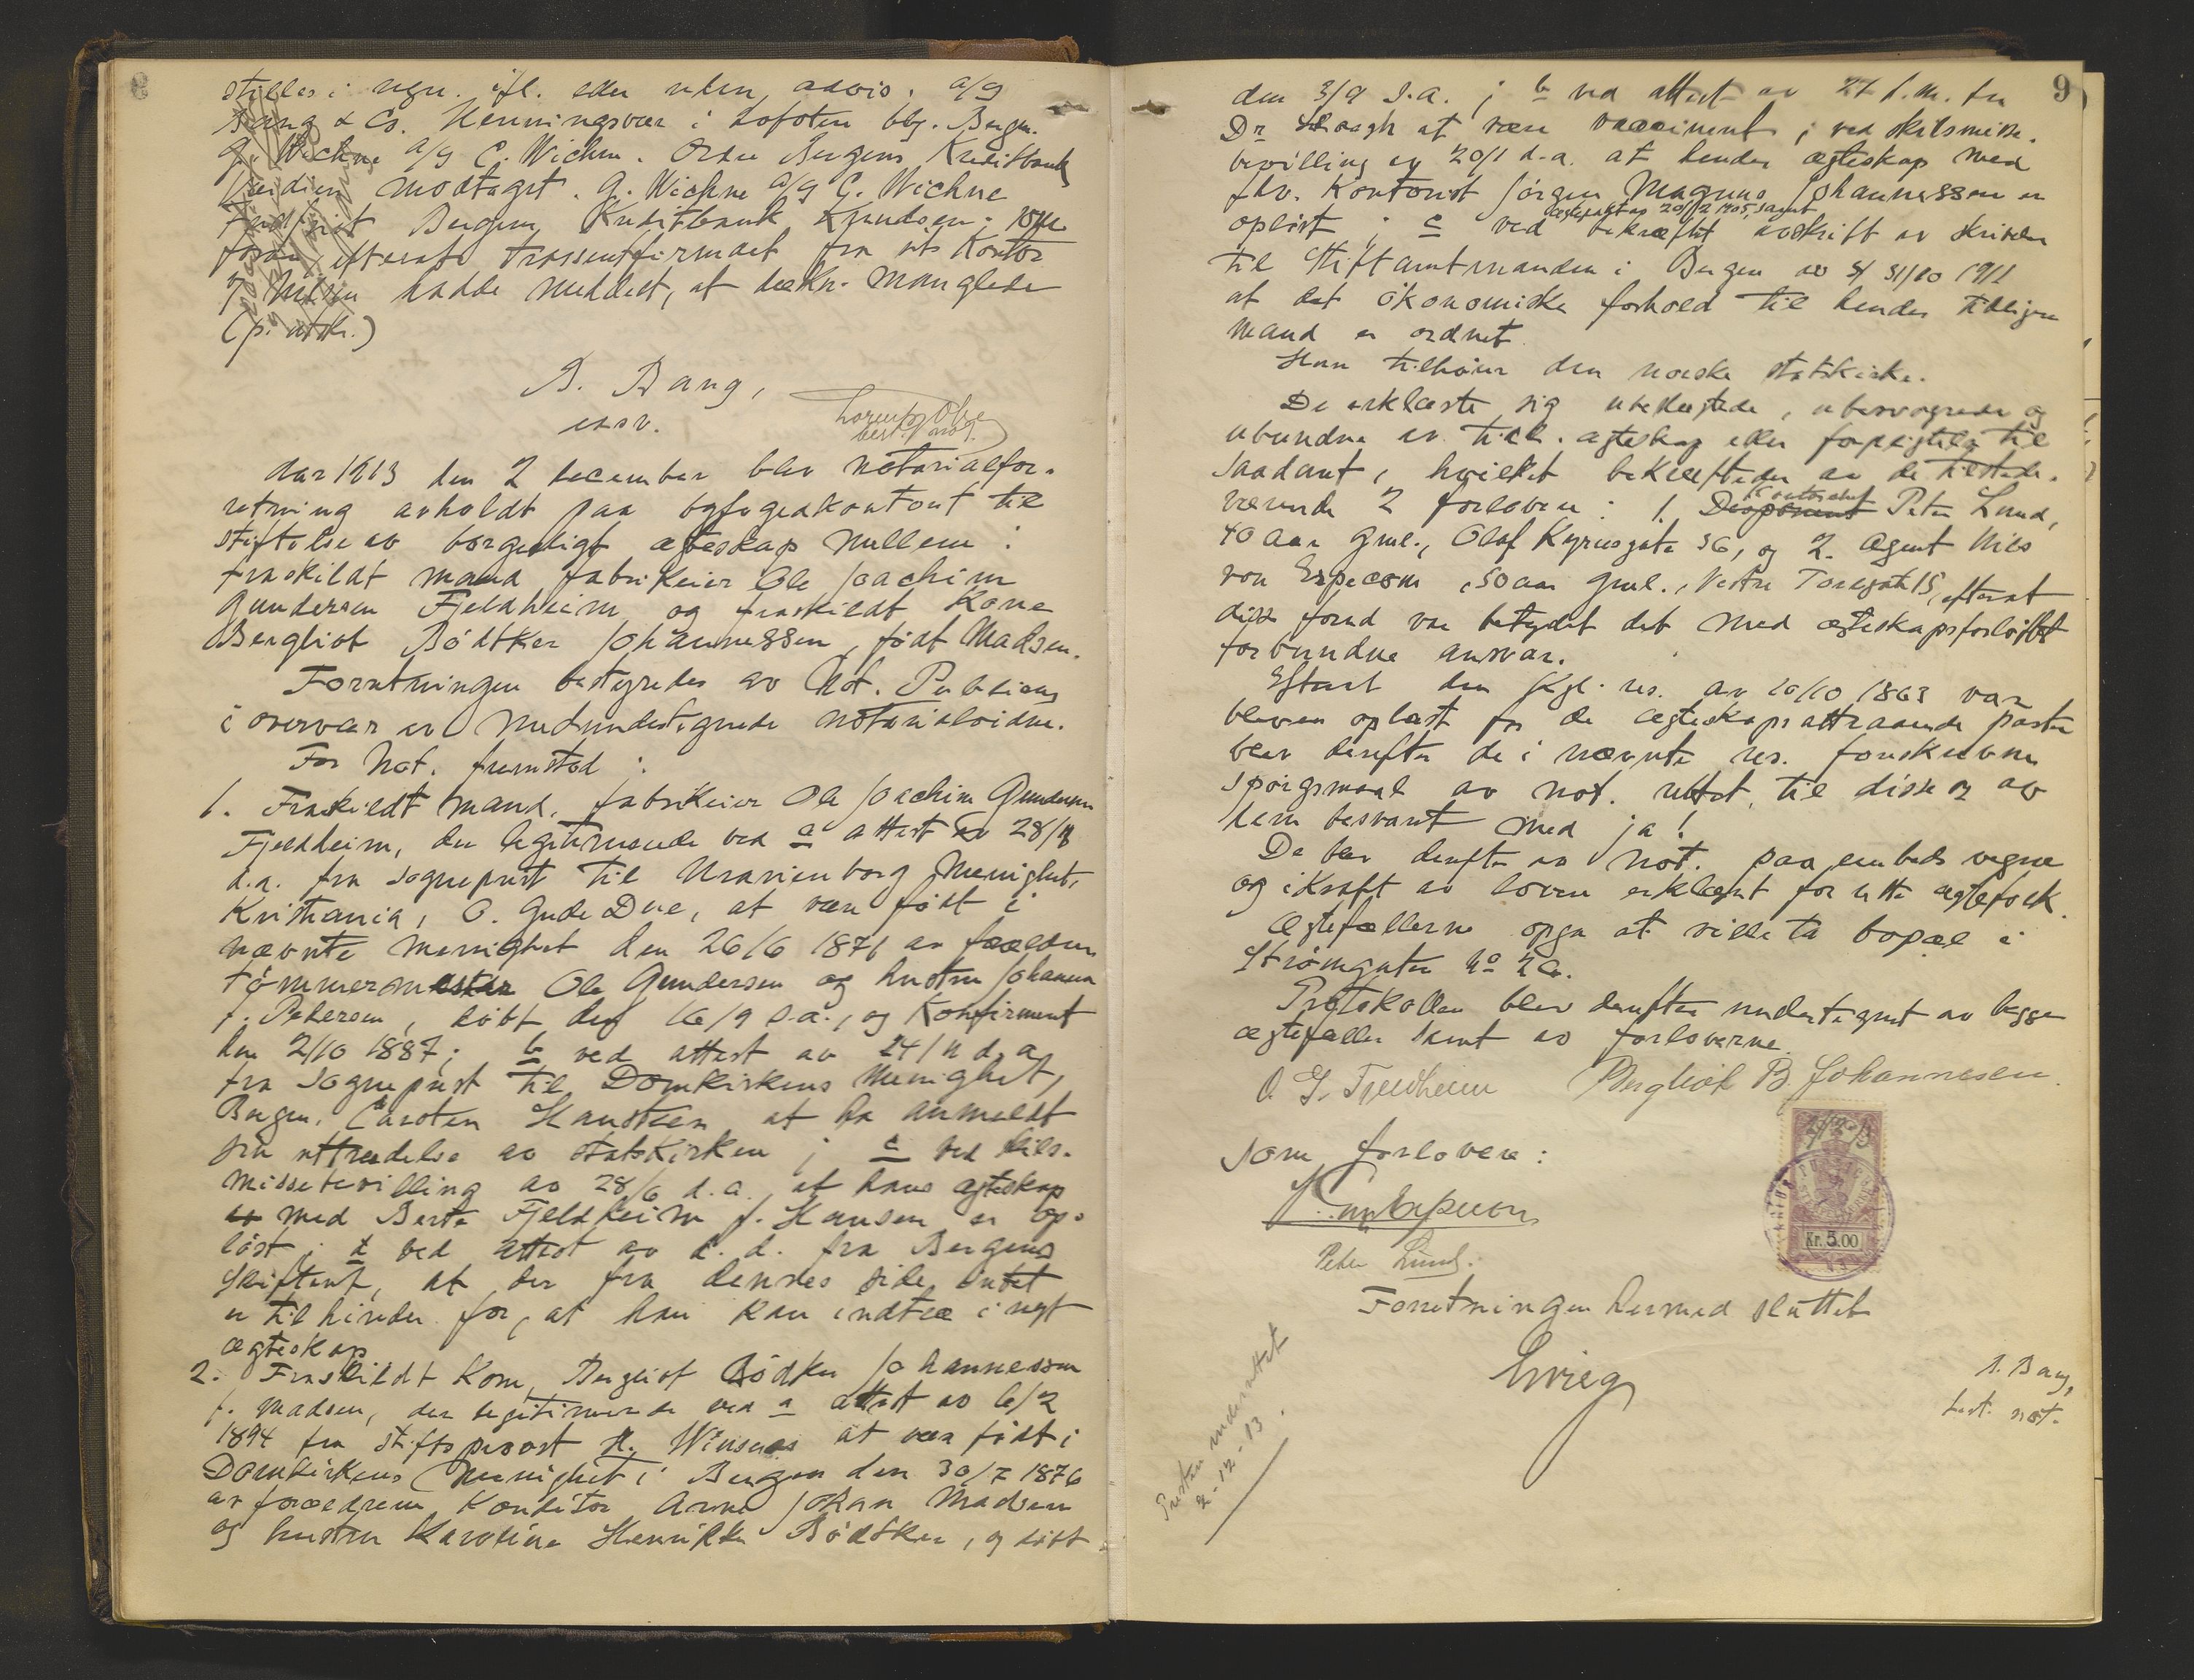 stilles i regn. ifl. eller uten advis. a/s
Bang & Co. Henningsvær i Lofoten bbg. Bergen.
G. Wichne a/s C. Wichne. Ordre Bergens Kreditbank
Værdien modtaget. G. Wichne a/s C. Wichne
Bergens Kreditbank Knudsen;
foran, efterat trassentfirmaet fra sit kontor
hadde meddelt, at dækn. manglede
(p. utskr.)
B. Bang,
Lorentz
best. not.
Aar 1913 den 2 december blev notarialfor-
retning avholdt paa byfogedkontoret til
stiftelse av borgerligt ægteskap mellem:
fraskildt mand fabrikeier Ole Joachim
Gundersen Fjeldheim og fraskildt kone
Bergliot Bödtker Johannessen, født Madsen.
Forretningen bestyredes av Not. Publicus
i overvær av medundertegnede notarialvidne.
For Not. fremstod:
1. Fraskildt mand, fabrikeier Ole Joachim Gundersen
Fjeldheim, der legitimerede ved a attest av 28/11
d.a. fra sogneprest til Uranienborg menighet,
Kristiania, O. Gude Due, at være født i
nævnte menighet den 26/6 1871 av forældre
tömmermester Ole Gundersen og hustru Johanna
f. Petersen, døbt den 16/9 s.a., og konfirmert
den 2/10 1887; b ved attest av 24/11 d.a.
fra sogneprest til Domkirkens menighet,
Bergen, Carsten Hansteen at ha anmeldt
sin uttrædelse av statskirken; c ved skils-
missebevilling av 28/6 d.a. at hans ægteskap
er med Berta Fjeldheim f. Hansen er op-
løst; d ved attest av d.d. fra Bergens
skifteret, at der fra dennes side intet
er til hinder for, at han kan indtræ i nyt
ægteskap
2. Fraskildt kone, Bergliot Bödtker Johannessen
f. Madsen, der legitimerede ved a attest av 6/2
1894 fra stiftsprovst H. Winsnes at være født i
Domkirkens menighet i Bergen den 30/7 1876
av forældrene konditor Arne Johan Madsen
og hustru Karoline Henrikke Bödtker, og døbt
9
den 3/9 s.a.; b ved attest av 27 f.m. fra
Dr at være vaccineret; ved skilsmisse-
bevilling av 20/1 d.a. at hendes ægteskap med
fhv. kontorist Jörgen Magnus Johannessen er
ægtepakt av 20/12 1905, samt
opløst; c ved bekræftet avskrift av skrivelse
til Stiftamtmanden i Bergen av 31/10 1911
at det økonomiske forhold til hendes tidligere
mand er ordnet.
Hun tilhører den norske statskirke.
De erklærte sig ubeslegtede, ubesvogrede og
ubundne av tidl. ægteskap eller forpligtelse til
saadant, hvilket bekræftedes av de tilstede-
kontorchef
værende 2 forlovere: 1. Disponent Peter Lund,
40 aar gml., Olaf Kyrresgate 36, og 2. Agent Nils
von Erpecom, 50 aar gml., Vestre Torvgate 15, efterat
disse forud var betydet det med ægteskapsforløftet
forbundne ansvar.
Efterat den kgl. res. av 16/10 1863 var
bleven oplæst for de ægteskapsattraaende parter
blev derefter de i nævnte res. foreskrevne
spørgsmaal av not. rettet til disse og av
dem besvaret med ja!
De blev derefter av not. paa embeds vegne
og i kraft av loven erklært for rette ægtefolk.
Ægtefællerne opga at ville ta bopæl i
Strömgaten No
Protokollen blev derefter undertegnet av begge
ægtefæller samt av forloverne.
O. G. Fjeldheim Bergliot B. Johannesen.
Som forlovere:
N. von Erpecom
Peter Lund.
2/12-13
Kr. 5.00
Forretningen dermed sluttet
Grieg
B. Bang,
best. not.
Presten underrettet
2-12-13.